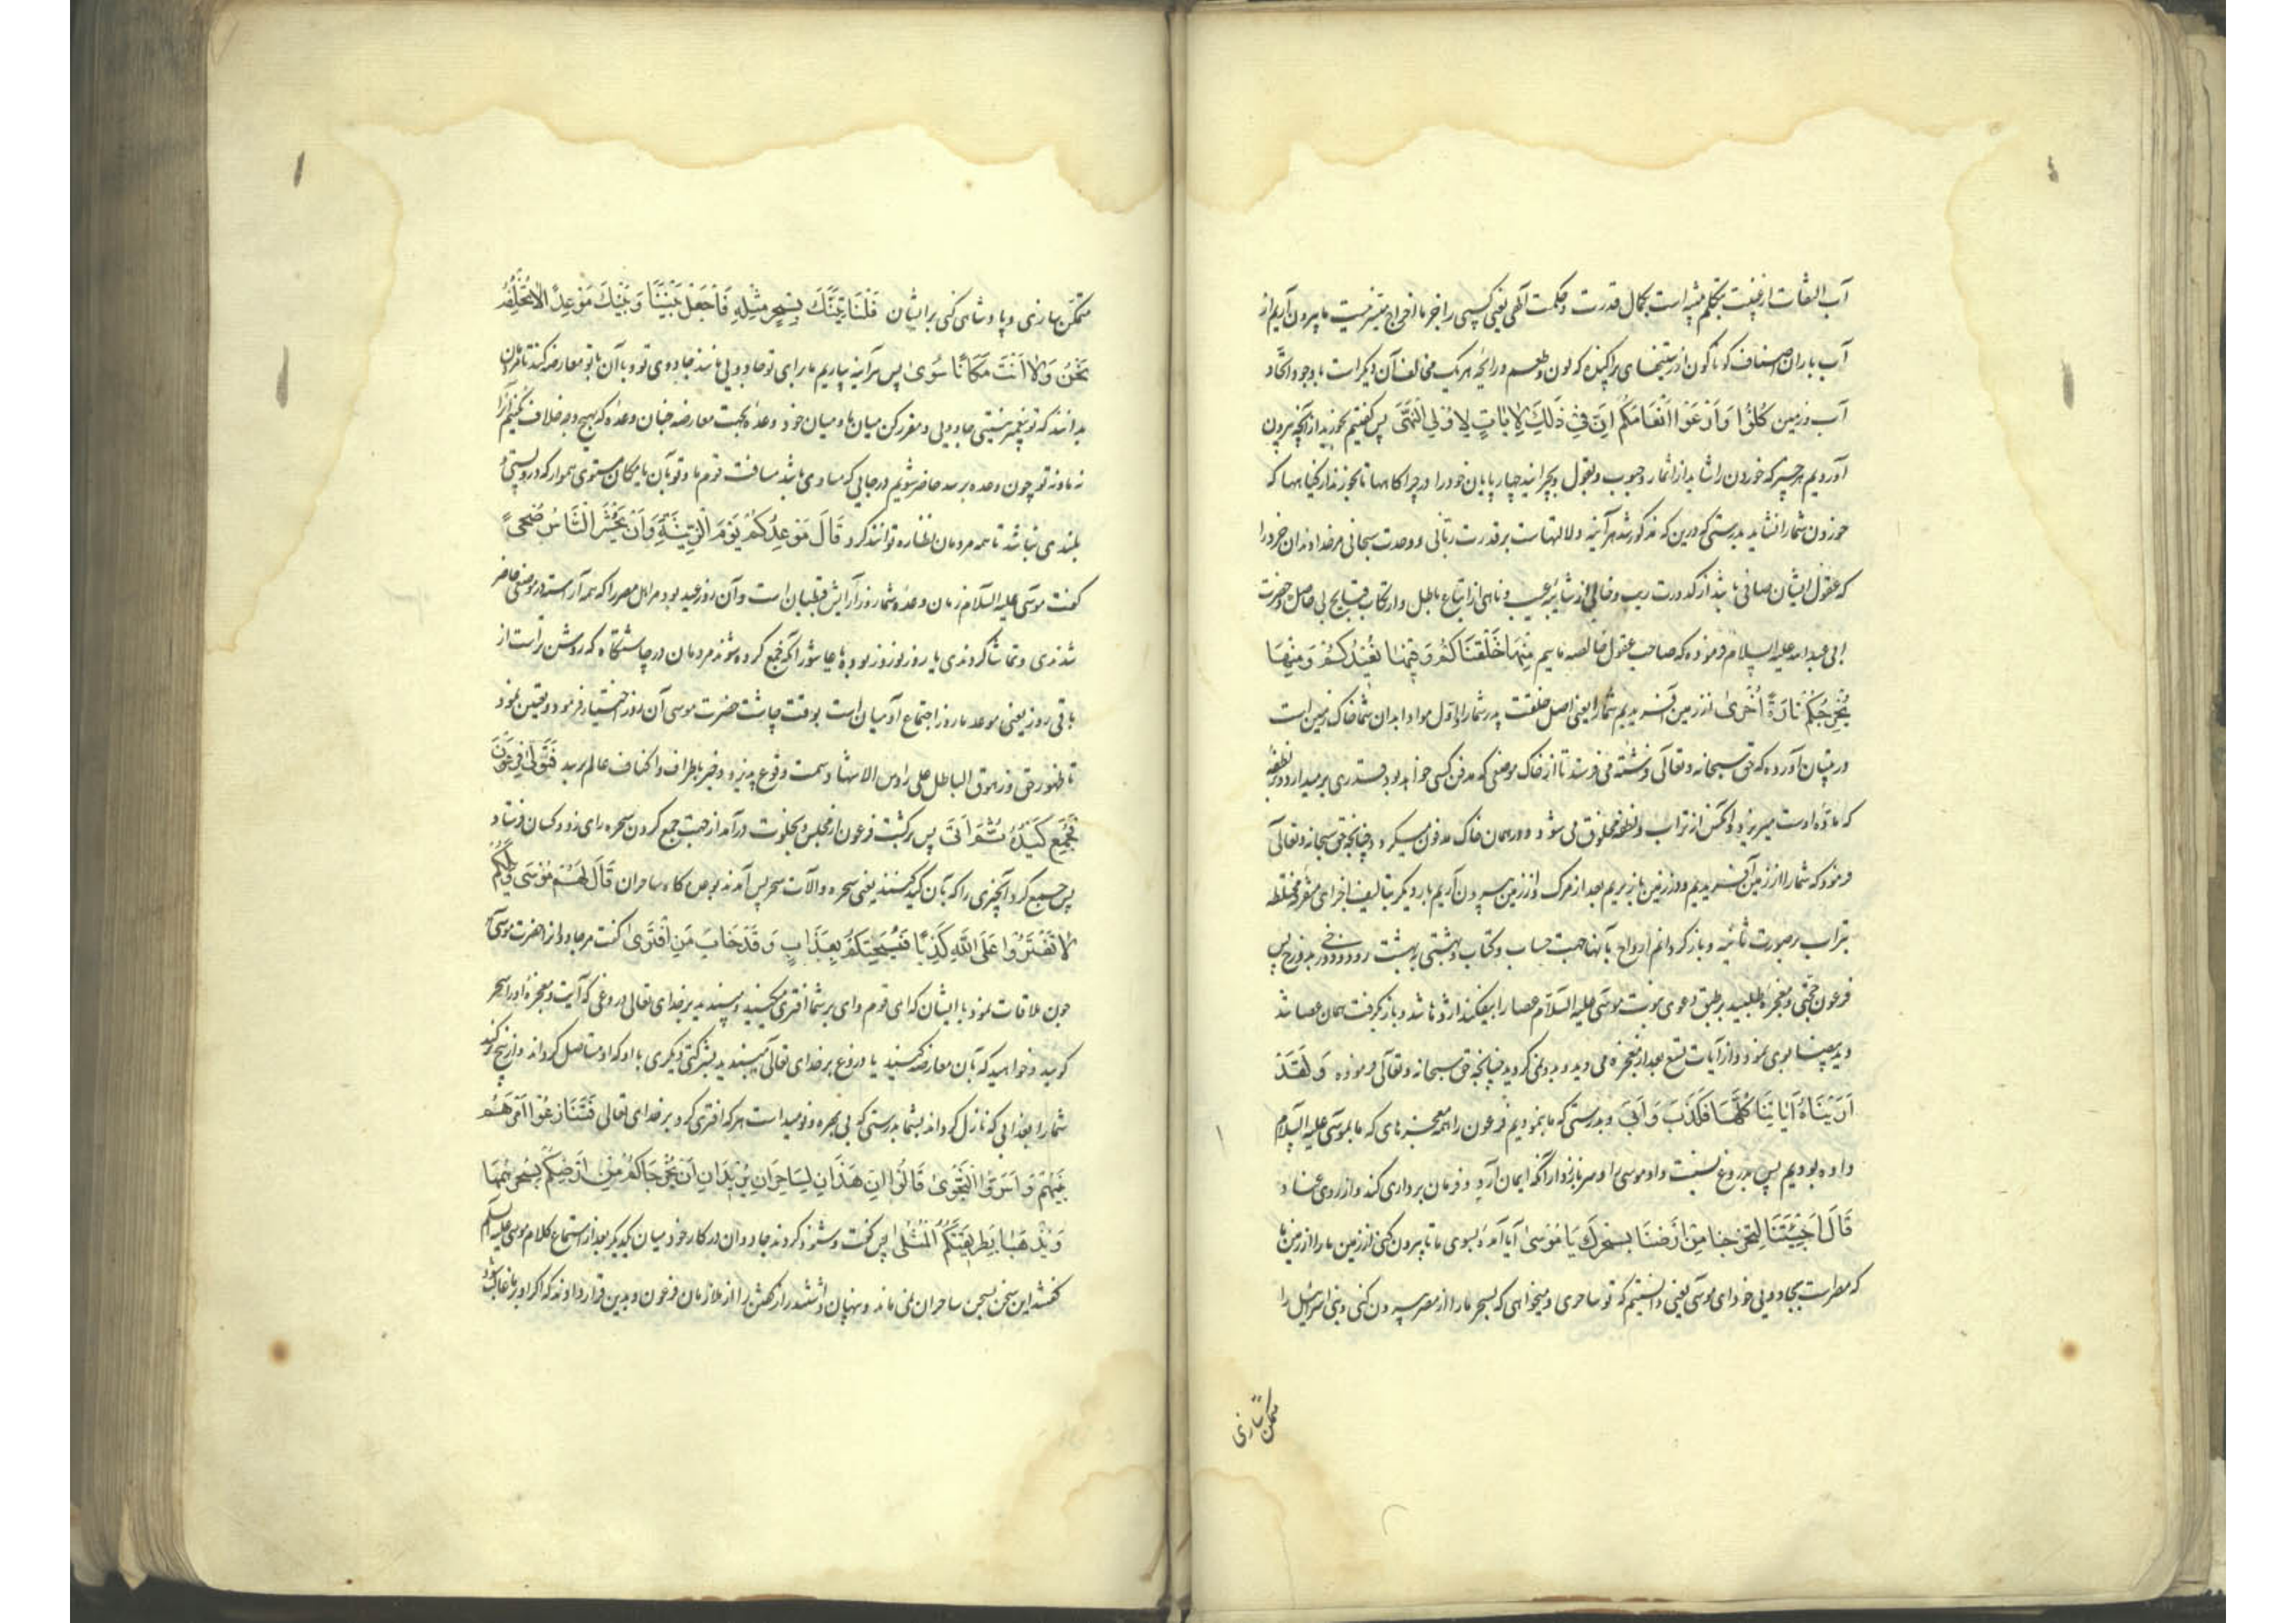 آب التفات از غیبت بتکلم مبنی است بکمال قدرت و حکمت آلهی یعنی کسی را جز ما اخراج میسر نیست ما بیرون آریم از
آب باران اصناف کوناکون از رستنیهای پراکنده که لون و طعم و رایحه هر یک مخالف آن دیکر است با وجود اتحاد
آب و زمین كُلُوا وَارْعَوْا اَنْعَامَكُمْ اِنَّ فِی ذَلِكَ لَاٰیَاتٍ لِاُولِی النُّهَىٰ پس کفتیم بخورید از آنچه بیرون
آوردیم هر چیز که خوردن را شاید از اثمار و حبوب و بقول و بچرانید چهارپایان خود را در چراکاهها تا بخورند از کیاهها که
خوردن شما را نشاید بدرستی که درین که مذکور شد هر آینه دلالتهاست بر قدرت ربانی و وحدت سبحانی مر خداوندان خرد را
که عقول ایشان صافی باشد از کدورت ریب و خالی از شایبه عیب و ناهی از اتباع باطل و ارتکاب قبایح بی حاصل و حضرت
ابی عبد الله علیه السلام فرموده که صاحب عقول خالصه ماییم مِنْهَا خَلَقْنَاكُمْ وَفِیهَا نُعِیدُكُمْ وَمِنْهَا
نُخْرِجُكُمْ تَارَةً اُخْرَىٰ از زمین آفریدیم شما را یعنی اصل خلقت پدر شما را و اول مواد ابدان شما خاک زمین است
در تبیان آورده که حق سبحانه و تعالی فرشته می فرستد تا از خاک موضعی که مدفن کسی خواهد بود قدری بر میدارد و در نطفه
که ماده اوست میریزد و آنکس از تراب و نطفه مخلوق می شود و در همان خاک مدفون میکردد چنانچه حق سبحانه و تعالی
فرمود که شما را از زمین آفریدیم و در زمین باز بریم بعد از مرک و از زمین بیرون آریم بار دیکر بتالیف اجزای متفرقه مختلطه
بتراب بر صورت ثانیه و باز کردانم ارواح بآنها جهت حساب و کتاب و بهشتی ببهشت رود و دوزخی بدوزخ پس
فرعون حجتی و معجزه طلبید بر طبق دعوی نبوت موسی علیه السلام عصا را بیفکند اژدها شد و باز بکرفت همان عصا شد
و ید بیضا بوی نمود و از آیات تسع بعد از معجزه می دید و بدو نمی کروید چنانچه حق سبحانه و تعالی فرموده وَلَقَدْ
اَرَیْنَاهُ اٰیَاتِنَا كُلَّهَا فَكَذَّبَ وَاَبَىٰ و بدرستی که ما بنمودیم فرعون را همه معجزهای که ما بموسی علیه السلام
داده بودیم پس بدروغ نسبت داد موسی را و سر باز زد از آنکه ایمان آرد و فرمان برداری کند و از روی عناد
قَالَ اَجِئْتَنَا لِتُخْرِجَنَا مِنْ اَرْضِنَا بِسِحْرِكَ یَا مُوسَىٰ آیا آمدۀ بسوی ما تا بیرون کنی از زمین ما را از زمین ما
که مصر است بجادویی خود ای موسی یعنی دانستیم که تو ساحری و میخواهی که بسحر ما را از مصر بیرون کنی و بنی اسرائیل را
متمکن سازی
متمکن سازی و پادشاهی کنی بر ایشان فَلَنَأْتِیَنَّكَ بِسِحْرٍ مِثْلِهِ فَاجْعَلْ بَیْنَنَا وَبَیْنَكَ مَوْعِدًا لَا نُخْلِفُهُ
نَحْنُ وَلَا اَنْتَ مَكَانًا سُوًى پس هر آینه بیاریم ما برای تو جادویی مانند جادوی تو و با آن با تو معارضه کنند تا مردمان
بدانند که تو پیغمبر نیستی جادویی و مقرر کن میان ما و میان خود وعدۀ بجهت معارضه چنان وعده که بهیچ وجه خلاف نکنیم آنرا
نه ما و نه تو چون وعده برسد حاضر شویم در جایی که مساوی باشد مسافت قوم ما و تو بآن یا مکان مستوی هموار که در و پستی و
بلندی نباشد تا همه مردمان نظاره توانند کرد قَالَ مَوْعِدُكُمْ یَوْمُ الزِّینَةِ وَاَنْ یُحْشَرَ النَّاسُ ضُحًى
کفت موسی علیه السلام زمان وعدۀ شما روز آرایش قبطیان است و آن روز عید بود مر اهل مصر را که همه آراسته در موضعی حاضر
شدندی و تماشا کردندی یا روز نوروز بوده یا عاشورا آنکه جمع کرده شوند مردمان در چاشتکاه که روشن تر است از
باقی روز یعنی موعد ما روز اجتماع آدمیان است بوقت چاشت حضرت موسی آن روز اختیار فرمود و تعیین نمود
تا ظهور حق و زهوق الباطل علی راوس الاشهاد سمت وقوع پذیرد و خبر باطراف و اکناف عالم برسد فَتَوَلَّىٰ فِرْعَوْنُ
فَجَمَعَ كَیْدَهُ ثُمَّ اَتَىٰ پس برکشت فرعون از مجلس و بخلوت درآمد از جهت جمع کردن سحره رای زد و کسان فرستاد
پس جمع کرد آنچیزی را که بآن کید کنند یعنی سحره و آلات سحر پس آمدند بوعده کاه ساحران قَالَ لَهُمْ مُوسَىٰ وَیْلَكُمْ
لَا تَفْتَرُوا عَلَى اللَّهِ كَذِبًا فَیُسْحِتَكُمْ بِعَذَابٍ وَقَدْ خَابَ مَنِ افْتَرَىٰ کفت مر جادوان را حضرت موسی
چون ملاقات نمود با ایشان که ای قوم وای بر شما افتری مکنید و مبندید بر خدای تعالی دروغی که آیت و معجزه او را سحر
کویید و خواهید که بآن معارضه کنید یا دروغ بر خدای تعالی مبندید بشرکت دیکری با او که او مستاصل کرداند و از بیخ بر کند
شما را بعذابی که نازل کرداند بشما بدرستی که بی بهره و نومید است هر که افتری کرد بر خدای تعالی فَتَنَازَعُوا اَمْرَهُمْ
بَیْنَهُمْ وَاَسَرُّوا النَّجْوَىٰ قَالُوا اِنْ هَذَانِ لَسَاحِرَانِ یُرِیدَانِ اَنْ یُخْرِجَاكُمْ مِنْ اَرْضِكُمْ بِسِحْرِهِمَا
وَیَذْهَبَا بِطَرِیقَتِكُمُ الْمُثْلَىٰ پس کفت و شنود کردند جادوان در کار خود میان یکدیکر بعد از استماع کلام موسی علیه السلم
کفتند این سخن بسخن ساحران نمی ماند و پنهان داشتند راز کفتن را از ملازمان فرعون و بدین قرار دادند که اکر او بر ما غالب شود